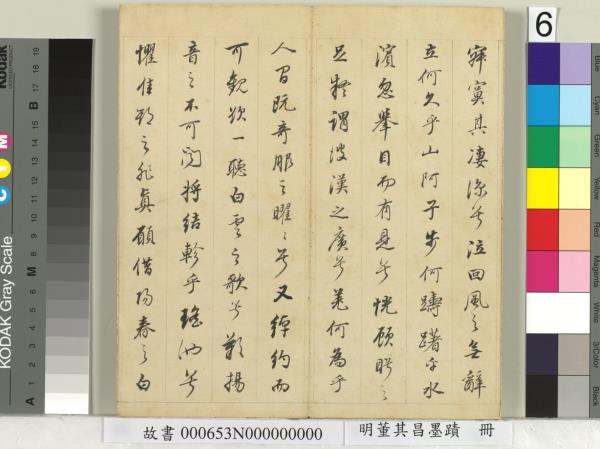 寂寞其淒涼兮泣回風之無辭
立何久乎山阿子步何躊躇於水
濱忽舉目而有見兮恍顧眄之
足疑謂彼漢之廣兮羌何為乎
人間既奇服之曜々兮又綽約而
可觀欲一聽白雲之歌兮歎揚
音之不可聞將結軫乎瑤池兮
懼佳期之非真願借陽春之白
故書 000653N000000000
明董其昌墨蹟 冊
6
Kodak
KODAK Gray Scale
C Y M
A 1 2 3 4 5 6 M 8 9 10 11 12 13 14 15 B 17 18 19
Blue
Cyan
Green
Yellow
Red
Magenta
White
3/Color
Black